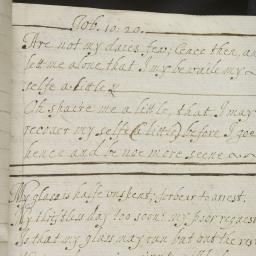 Job. 10: 20.
Are not my daies few; Ceace then, an
lett me alone that I my bewaile my
selfe a little
Oh spaire me a little, that I may
recover my selfe (a little) before I goe
hence and be noe more seene
My glass is halfe unspent; forbear to arrest.
My thriftless day too soone: my poor request
Is that my glass may run but out the rest